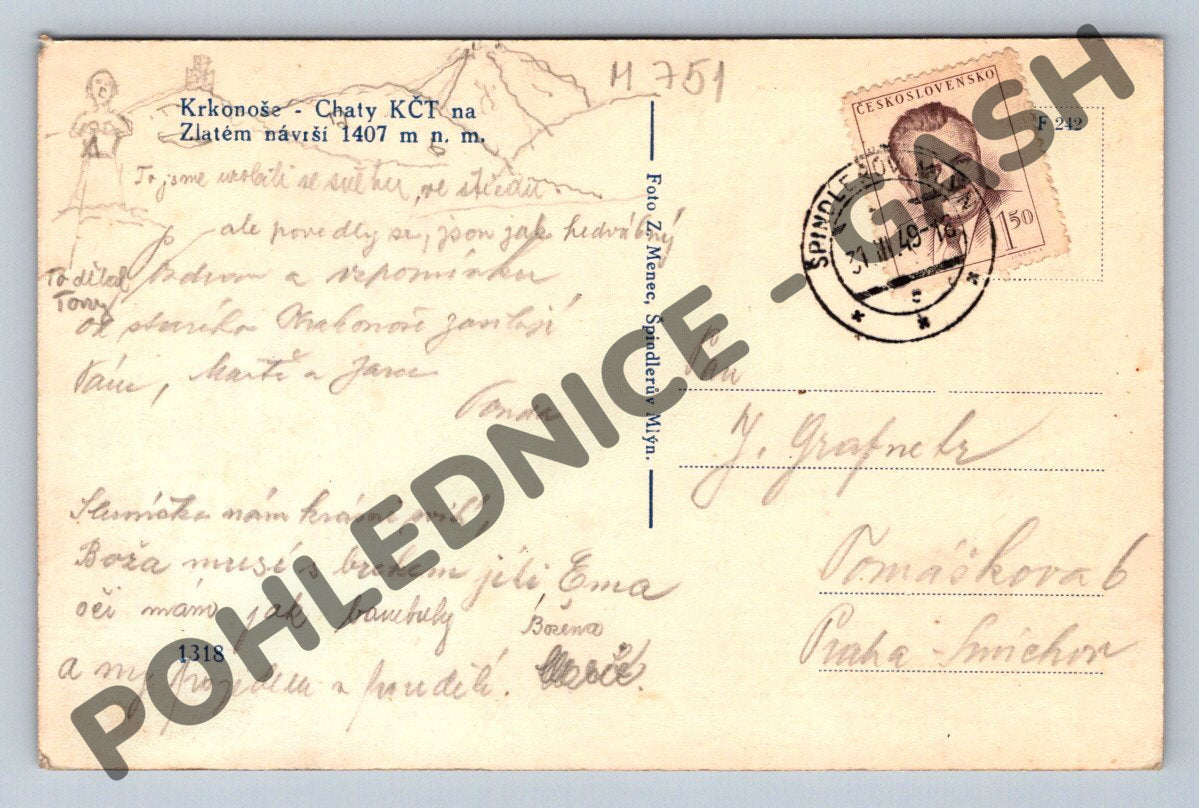 M 751
Krkonoše - Chaty KČT na
Zlatém návrší 1407 m n. m.
To jsme urobili ve sněhu, ve středu.
ale povedly se, jsou jak hedvábný
To dělal
Tony
a vzpomínku
od starého Krakonoše zasílají
Vám, Martě a Jare
Tonda
Sluníčko nám krásně svítí,
Boža musí s brekem jíti
Ema
oči mám jak bambuly
Božena
a my pojedem v pondělí.
1318
Foto Z. Menec, Špindlerův Mlýn.
ČESKOSLOVENSKO
1.50
F 242
ŠPINDLERŮV MLÝN
31.III.49-16
c
Pan
J. Grafnetr
Tomáškova 6
Praha - Smíchov
POHLEDNICE - GASH